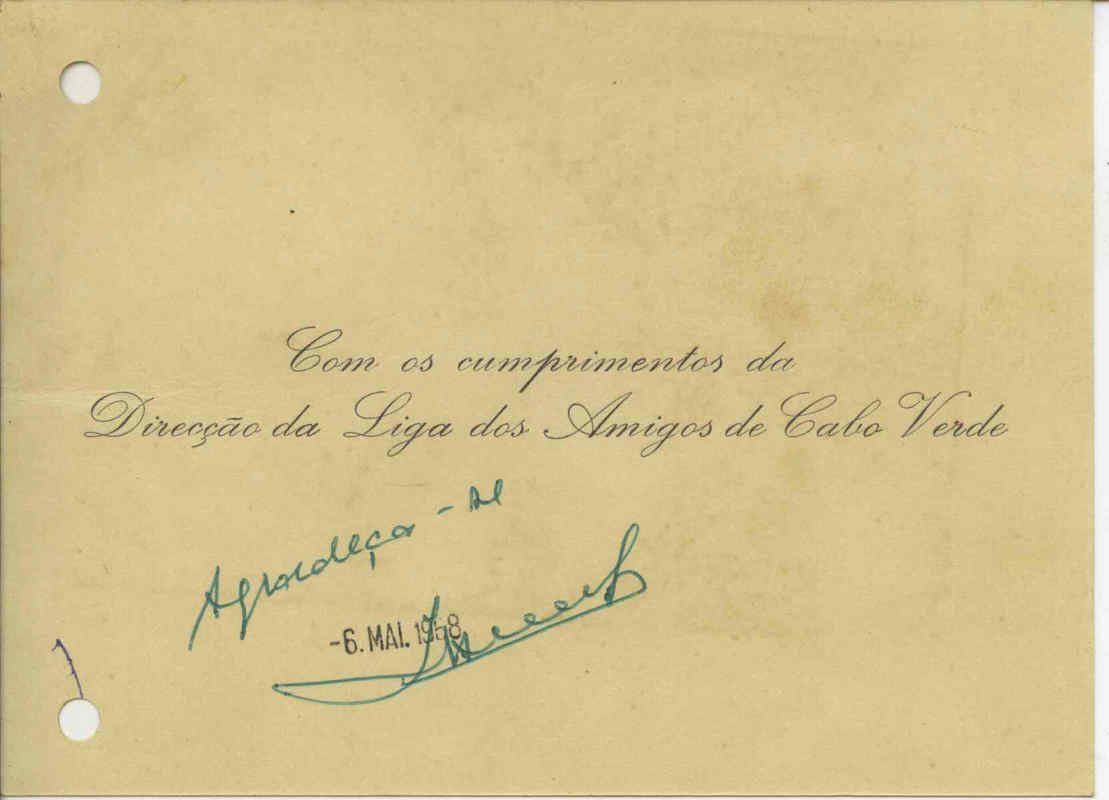 Com os cumprimentos da
Direcção da Liga dos Amigos de Cabo Verde
Agradeça-se
-6. MAI. 1958